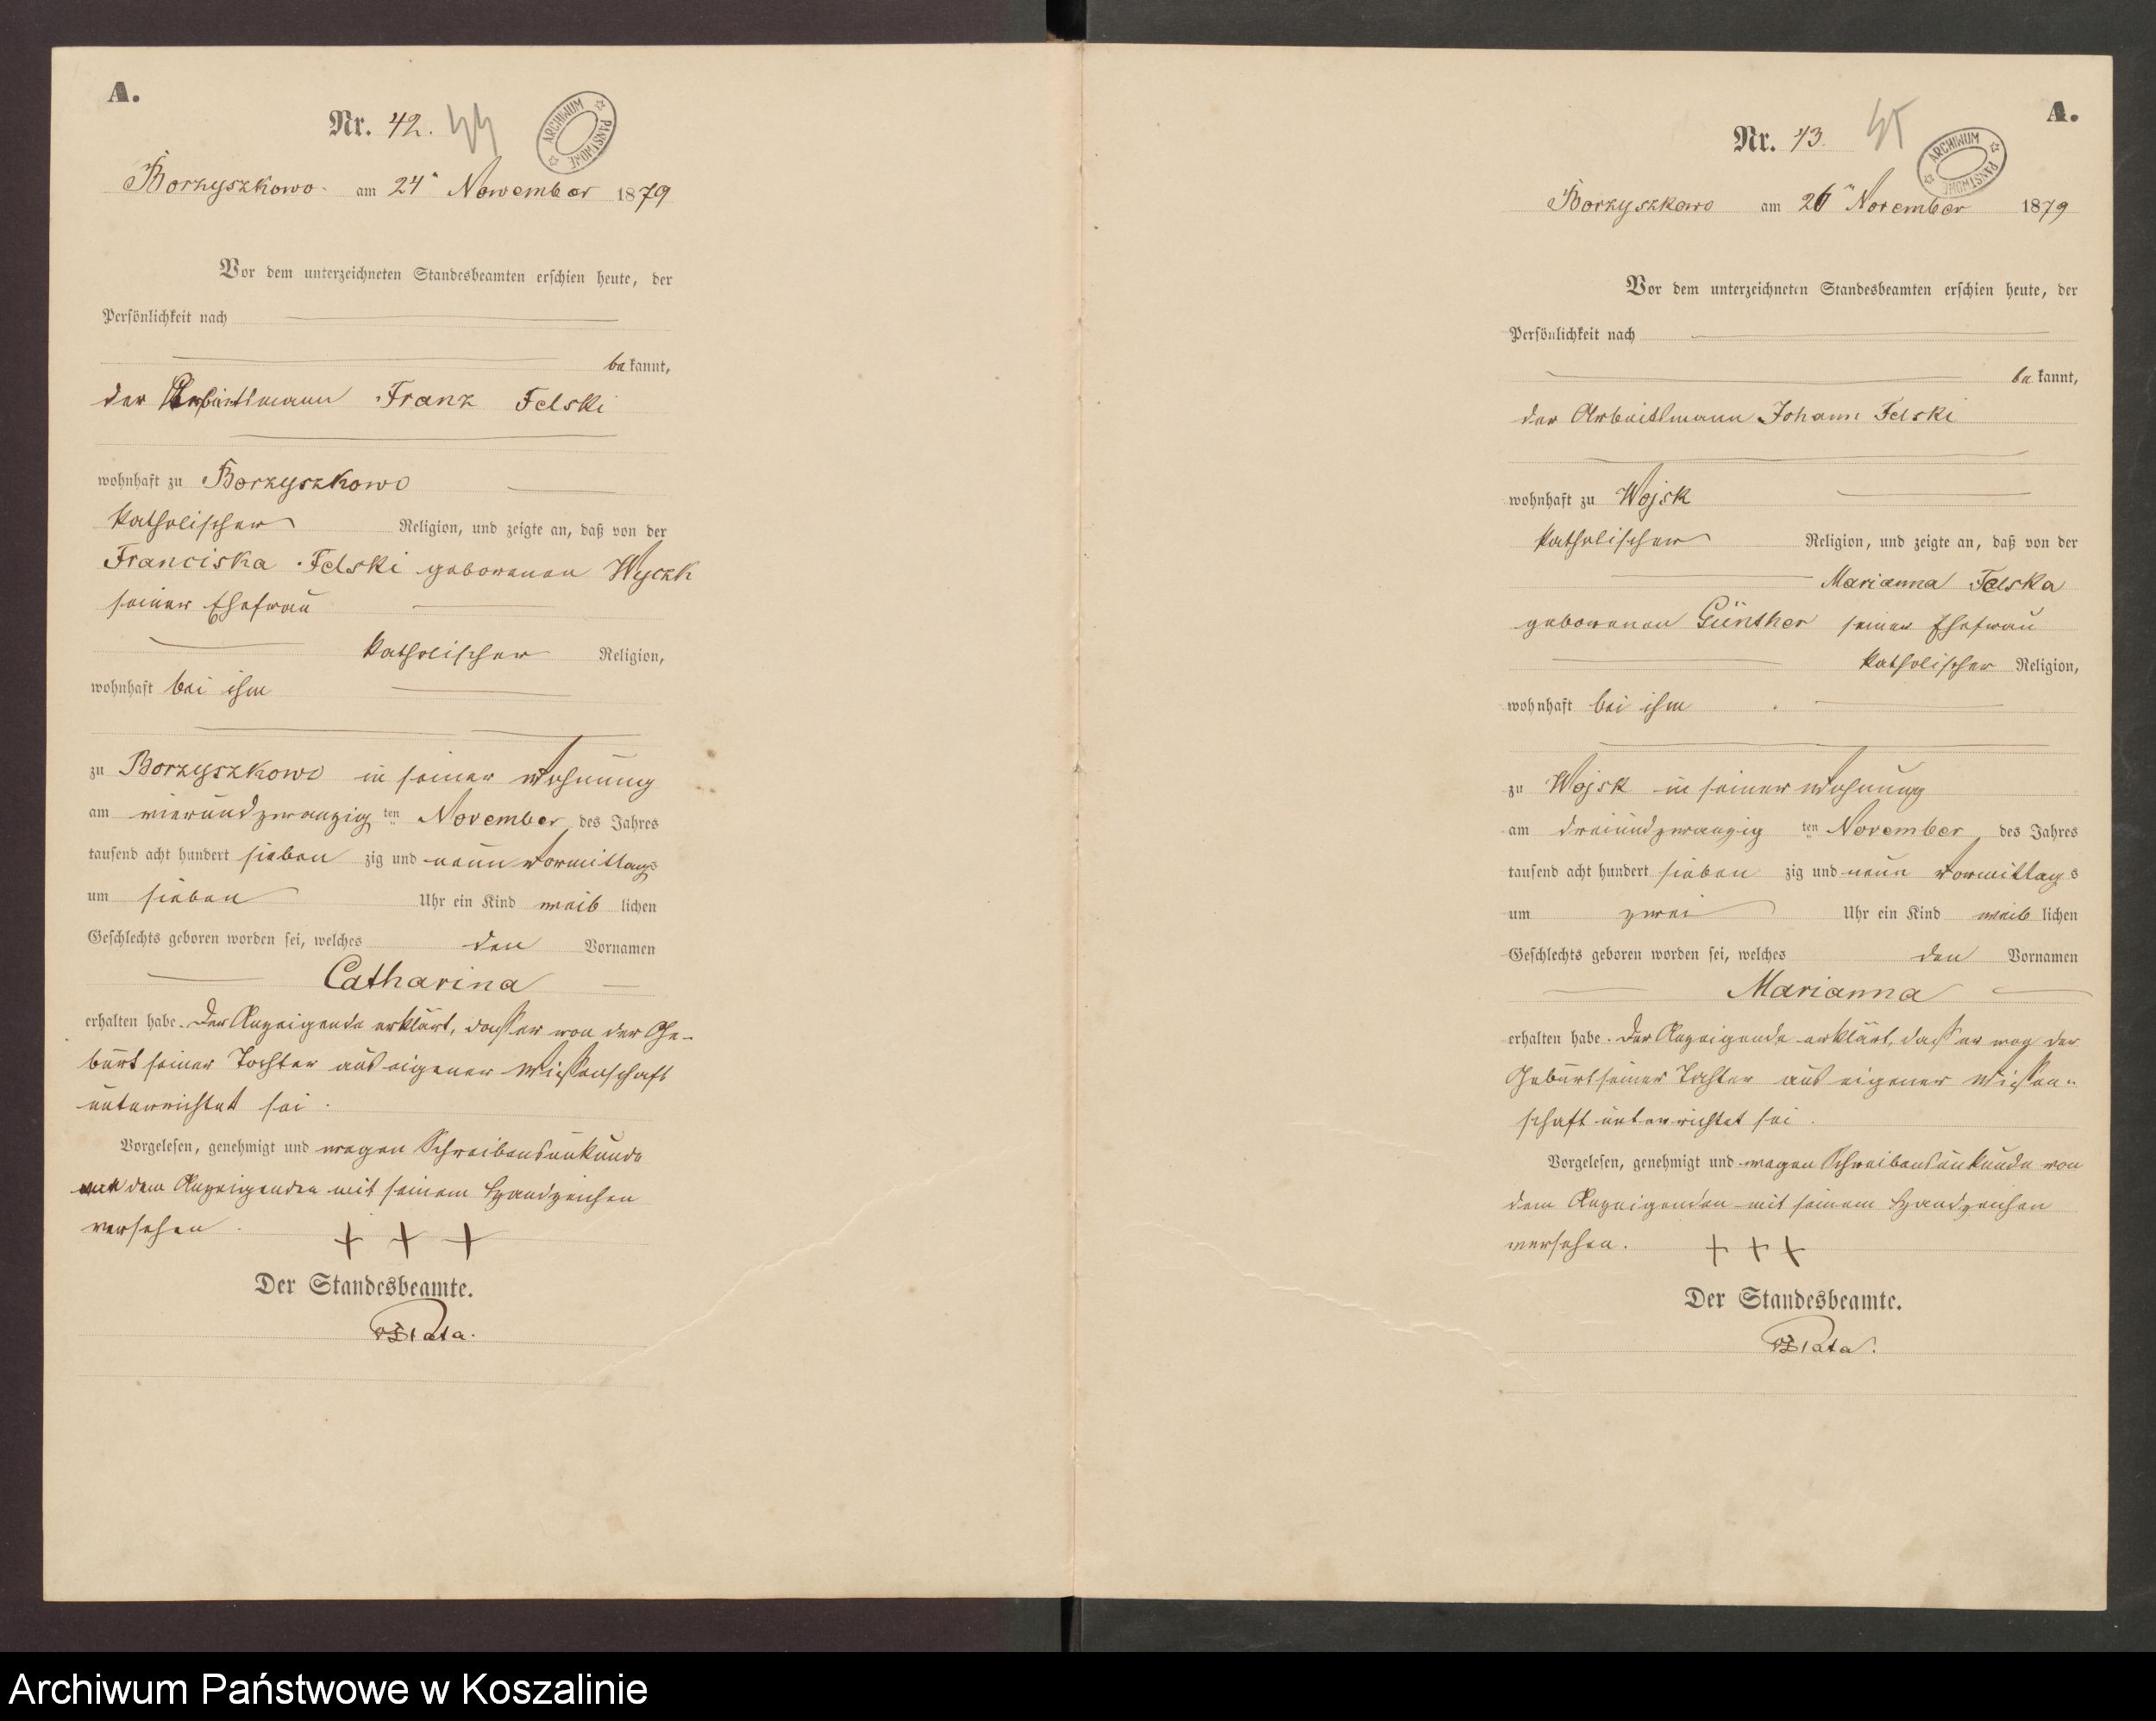 A.
Nr. 42. 44
ARCHIWUM PAŃSTWOWE
Borzyszkowo. am 24n Nowember 1879
Vor dem unterzeichneten Standesbeamten erschien heute, der
Persönlichkeit nach
be kannt,
der Arbeitsmann Franz Felski
wohnhaft zu Borzyszkowo
katholischer Religion, und zeigte an, daß von der
Franciska Felski geborenen Wyczk
seiner Ehefrau
katholischer Religion,
wohnhaft bei ihm
zu Borzyszkowo in seiner Wohnung
am vierundzwanzig ten November des Jahres
tausend acht hundert sieben zig und neun Vormittags
um sieben Uhr ein Kind weib lichen
Geschlechts geboren worden sei, welches den Vornamen
Catharina
erhalten habe. Der Anzeigende erklärt, dass er von der Ge-
burt seiner Tochter aus eigener Wissenschaft
unterrichtet sei.
Vorgelesen, genehmigt und wegen Schreibensunkunde
von dem Anzeigenden mit seinem Handzeichen
versehen.
+ + +
Der Standesbeamte.
A.
Nr. 43. 45
ARCHIWUM PAŃSTWOWE
Borzyszkowo am 26n November 1879
Vor dem unterzeichneten Standesbeamten erschien heute, der
Persönlichkeit nach
be kannt,
der Arbeitsmann Johann Felski
wohnhaft zu Wojsk
katholischer Religion, und zeigte an, daß von der
Marianna Felska
geborenen Günther seiner Ehefrau
katholischer Religion,
wohnhaft bei ihm
zu Wojsk in seiner Wohnung
am dreiundzwanzig ten November des Jahres
tausend acht hundert sieben zig und neun Vormittags
um zwei Uhr ein Kind weib lichen
Geschlechts geboren worden sei, welches den Vornamen
Marianna
erhalten habe. Der Anzeigende erklärt, dass er von der
Geburt seiner Tochter aus eigener Wissen-
schaft unterrichtet sei.
Vorgelesen, genehmigt und wegen Schreibensunkunde von
dem Anzeigenden mit seinem Handzeichen
versehen.
+ + +
Der Standesbeamte.
Archiwum Państwowe w Koszalinie